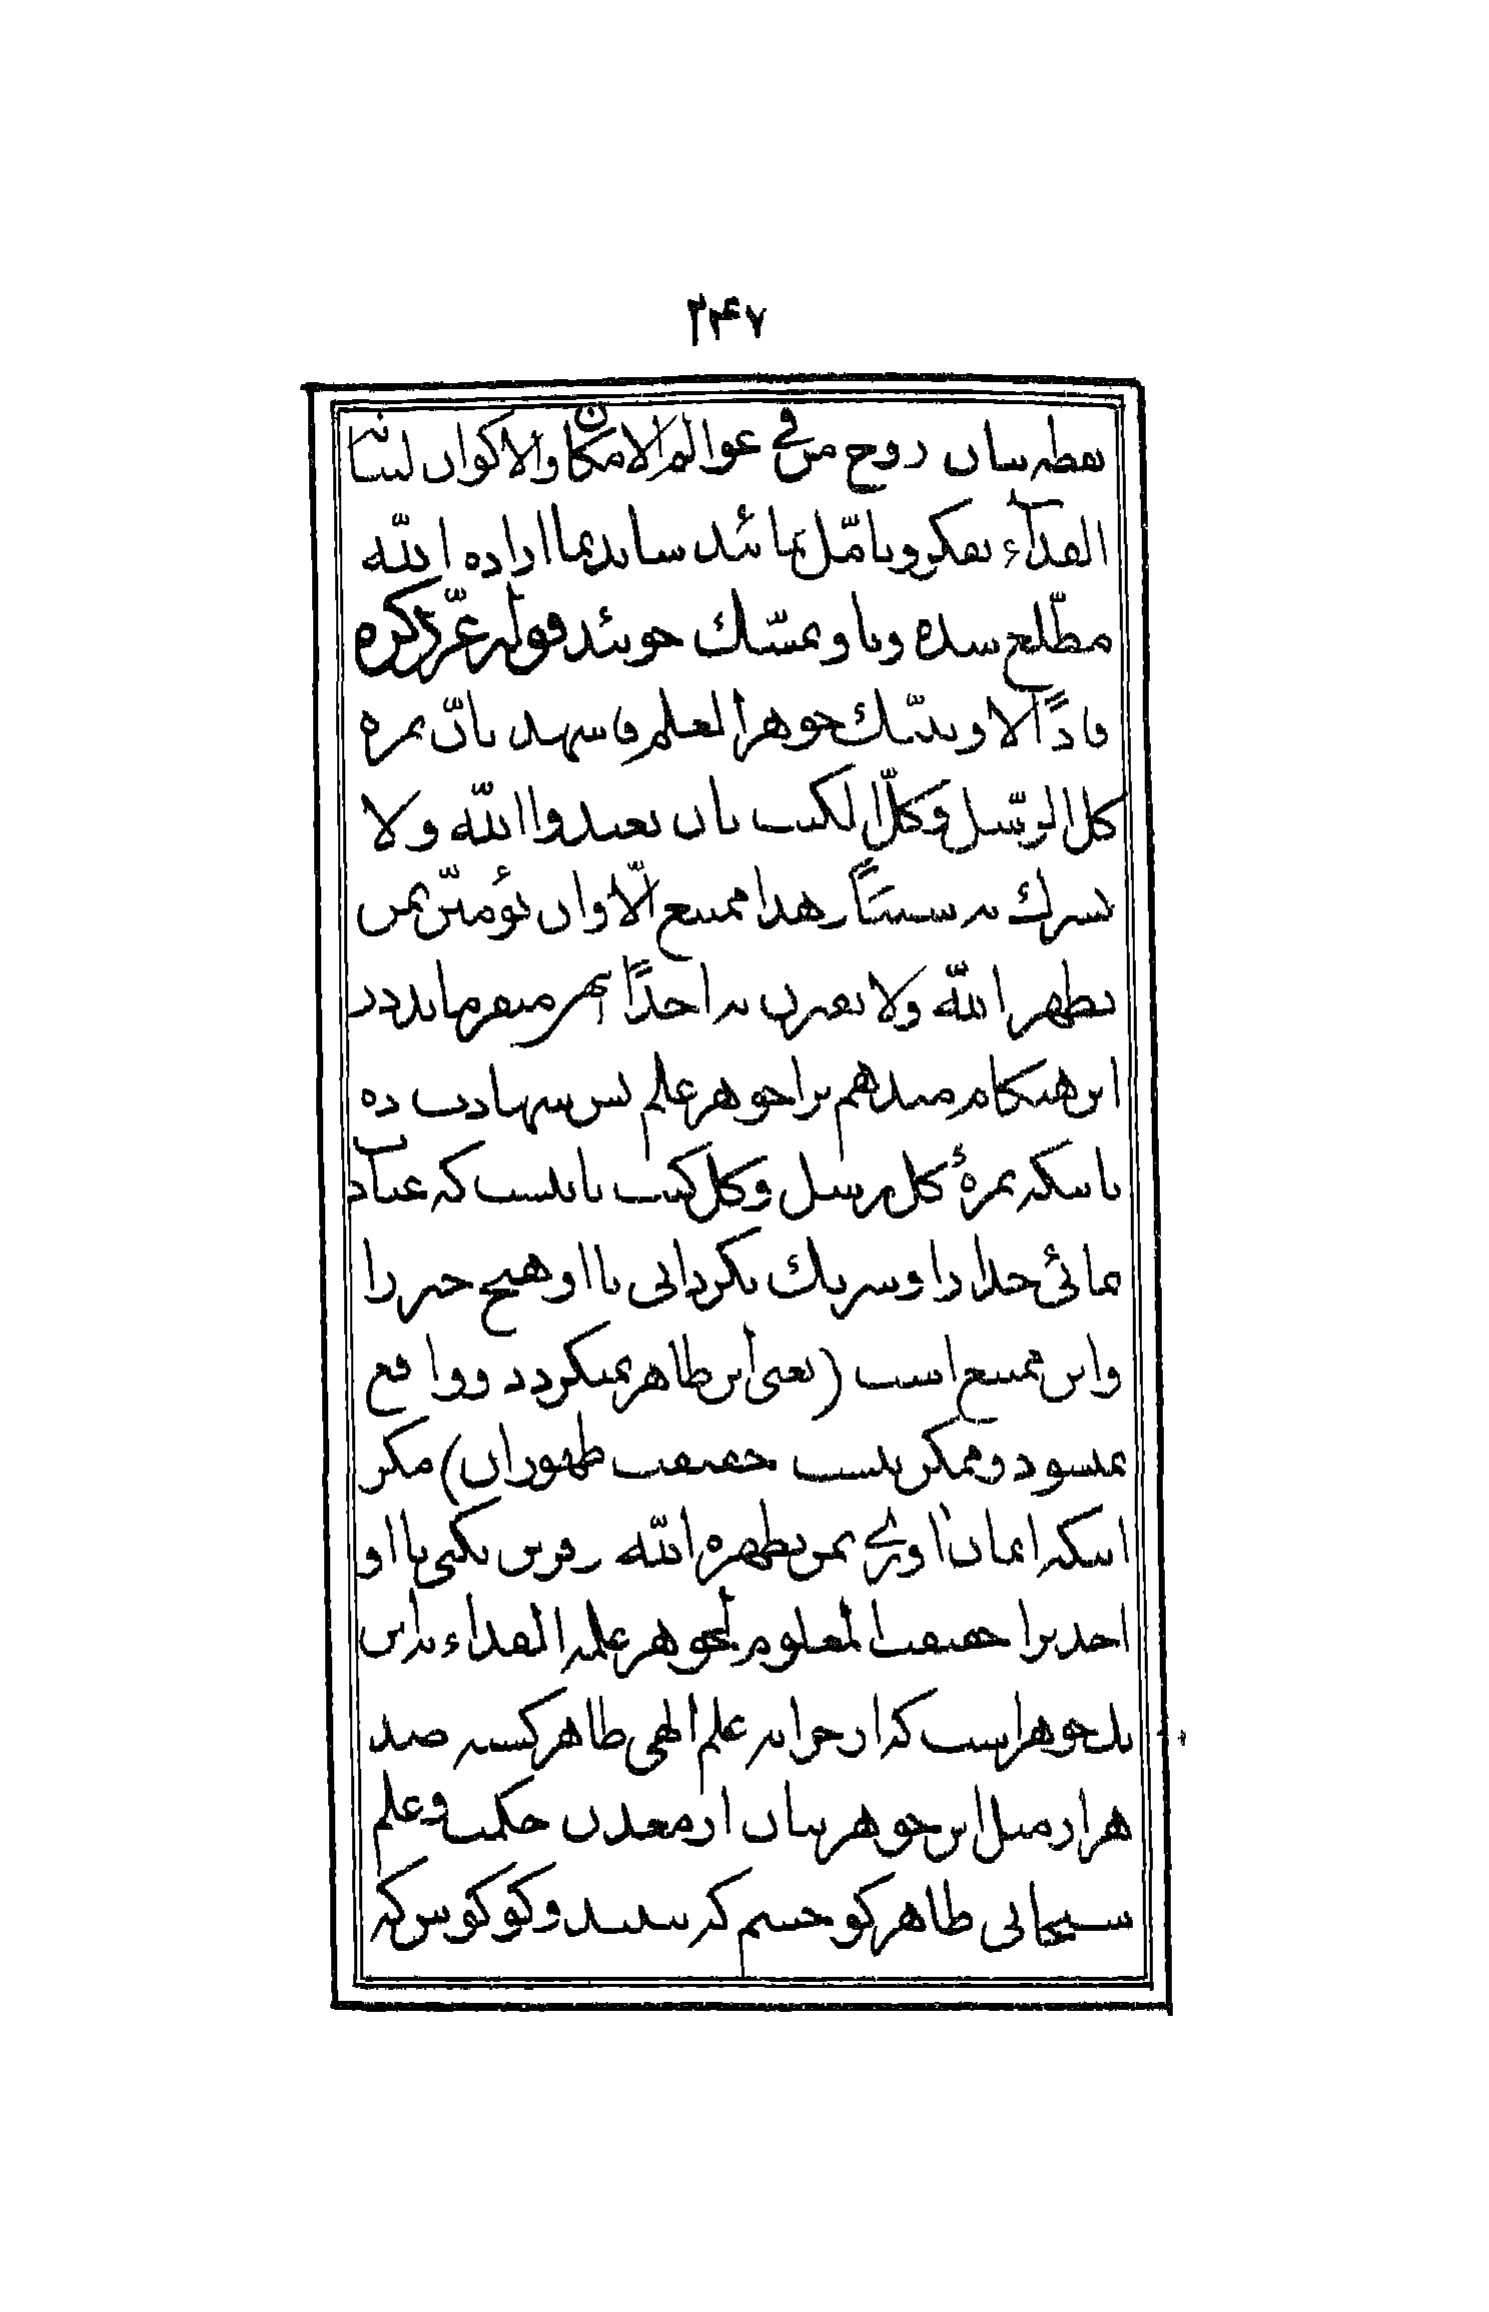 ۲۴۷
نقطه بیان روح من فی عوالم الامکان والاکوان لبیانه
الفداء تفکر و تأمّل نمائند شاید بما اراده الله
مطّلع شده و باو تمسّك جویند قوله عزّ ذکره
فاذاً لاوتینّك جوهر العلم فاشهد بانّ ثمره
کل الرّسل و کلّ الکتب بان تعبدوا الله ولا
تشرك به شیئاً و هذا ممتنع الّا وان تؤمننّ بمن
یظهر الله ولا تقرن به احداً انتهی میفرماید در
این هنگام میدهم ترا جوهر علم پس شهادت ده
باینکه ثمرهٔ کل رسل و کل کتب باینست که عبادت
نمائی خدا را و شریك نگردانی با او هیچ چیز را
و این ممتنع است (یعنی این ظاهر نمیگردد و واقع
نمیشود و ممکن نیست حقیقت ظهور ان) مگر
اینکه ایمان اوری بمن یظهره الله و قرین نکنی با او
احدیرا حقیقت المعلوم لجوهر علمه الفداء بد این
یك جوهریست که از خزانه علم الهی ظاهر گشته صد
هزار مثل این جوهر بیان از معدن حکمت و علم
سبحانی ظاهر کو چشم که ببیند و کو گوش که